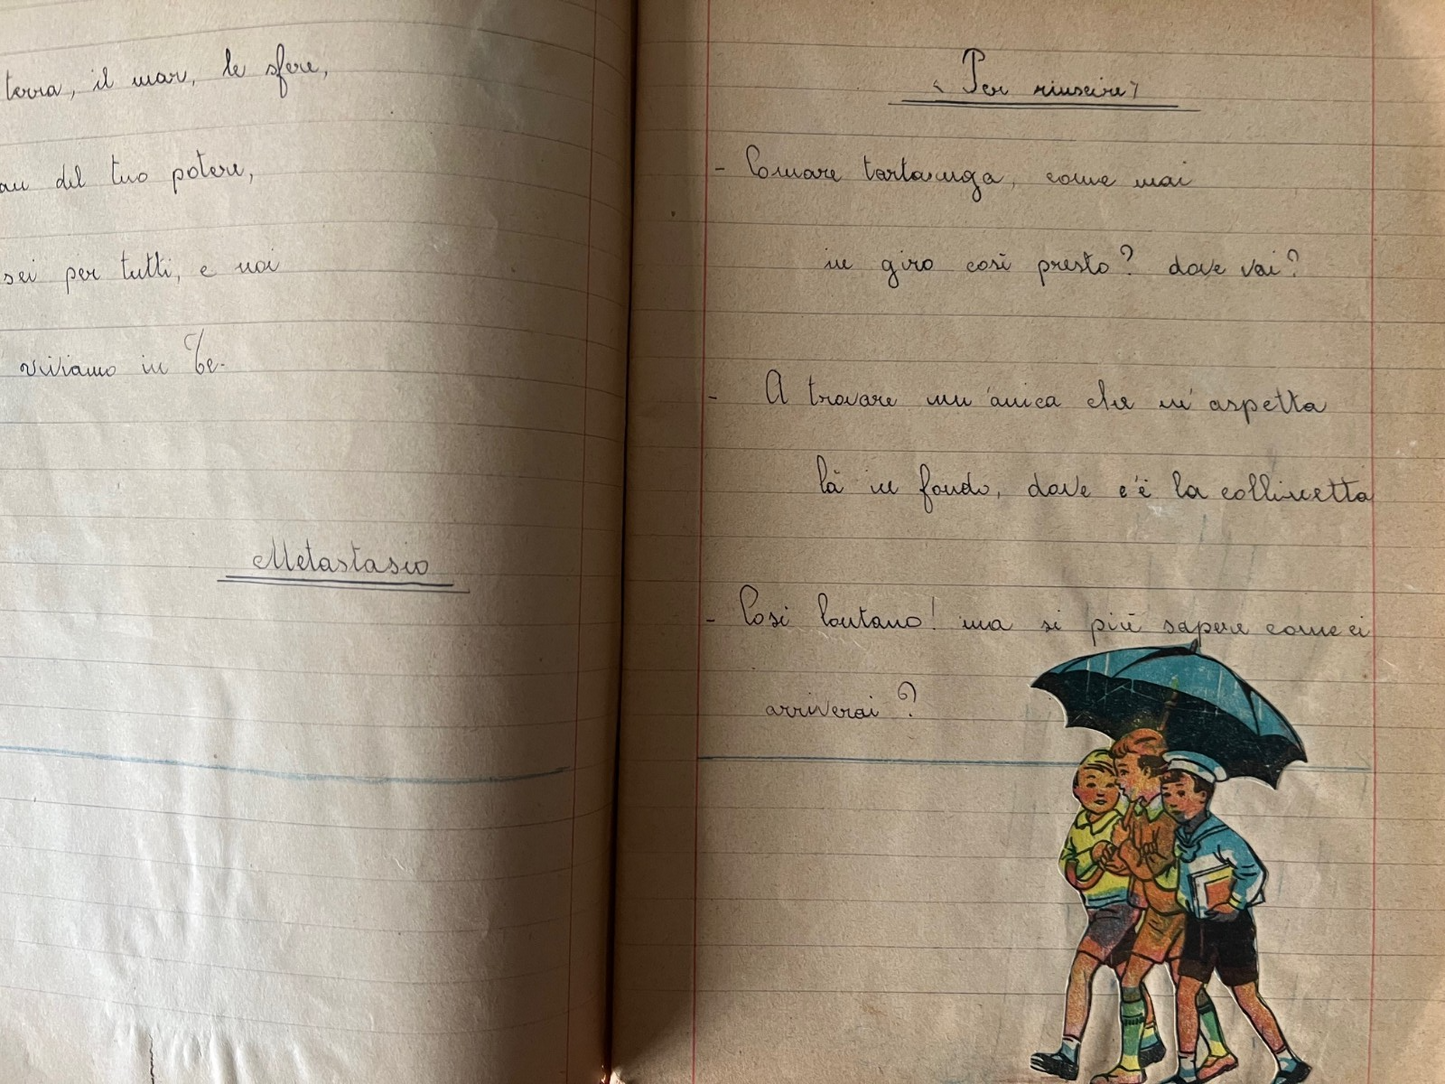 terra, il mar, le sfere,
del tuo potere,
sei per tutti, e noi
viviamo in Te.
Metastasio
"Per riuscire"
- Comare tartaruga, come mai
in giro così presto? dove vai?
- A trovare un'amica che m'aspetta
là in fondo, dove c'è la collinetta
- Così lontano! ma si può sapere come ci
arriverai?